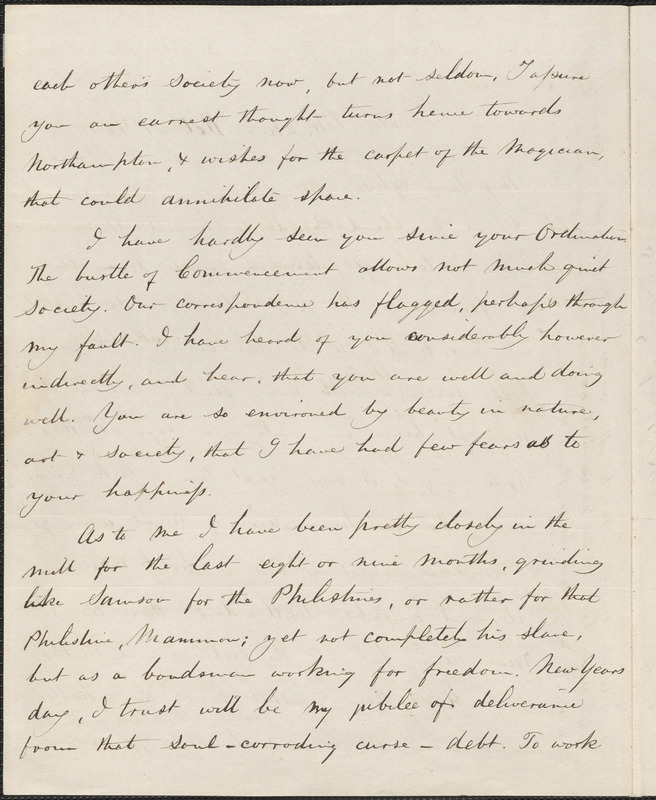 each other's society now, but not seldom, I assure
you an earnest thought turns hence towards
Northampton, & wishes for the carpet of the Magician,
that could annihilate space.
I have hardly seen you since your Ordination.
The bustle of Commencement allows not much quiet
society. Our correspondence has flagged, perhaps through
my fault. I have heard of you considerably however
indirectly, and hear, that you are well and doing
well. You are so environed by beauty in nature,
art & society, that I have had few fears as to
your happiness.
As to me I have been pretty closely in the
mill for the last eight or nine months, grinding
like Samson for the Philistines, or rather for that
Philistine, Mammon; yet not completely his slave,
but as a bondsman working for freedom. New Years
day, I trust will be my jubilee of deliverance
from that soul-corroding curse - debt. To work